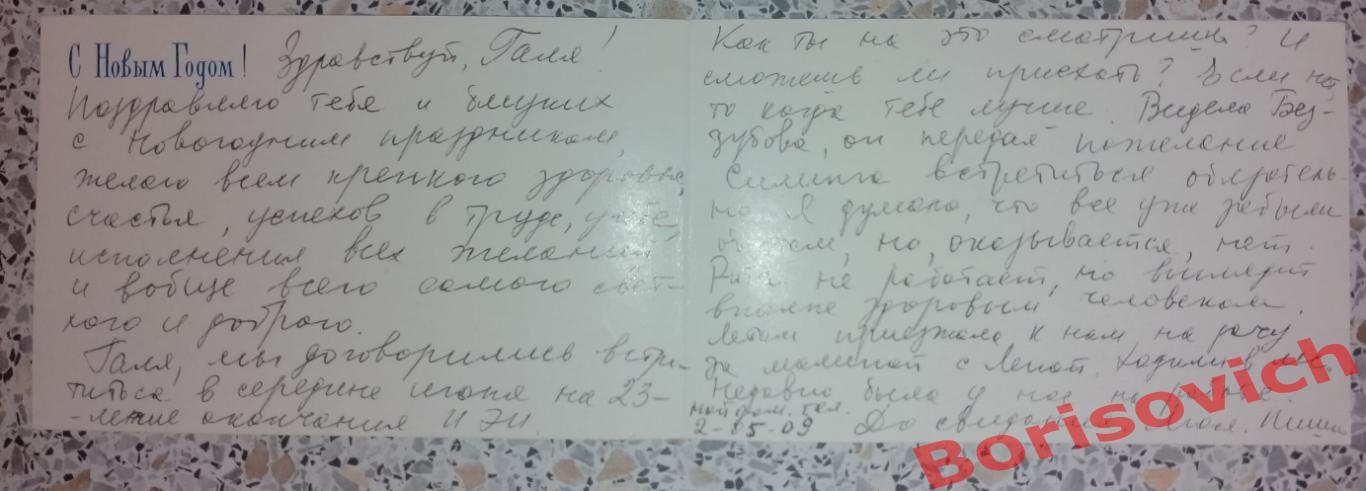 С Новым Годом! Здравствуй, Галя!
Поздравляю тебя и близких
с Новогодним праздником,
желаю всем крепкого здоровья,
счастья, успехов в труде, учебе,
исполнения всех желаний
и вобще всего самого свет-
лого и доброго.
Галя, мы договорились встре-
титься в середине июня на 23-
-летие окончания ИЭИ.
Как ты на это смотришь? И
сможешь ли приехать? Если нет,
то когда тебе лучше. Видела Без-
зубова, он передал пожелание
встретиться обязатель-
но. Я думала, что все уже забыли
об этом, но, оказывается, нет.
Рита не работает, но выглядит
вполне здоровым человеком.
Летом приезжала к нам на дачу
за малиной с Леной. Ходили в лес.
Недавно была у нас на работе.
мой дом. тел.
2-05-09 До свидания. Пиши
Borisovich